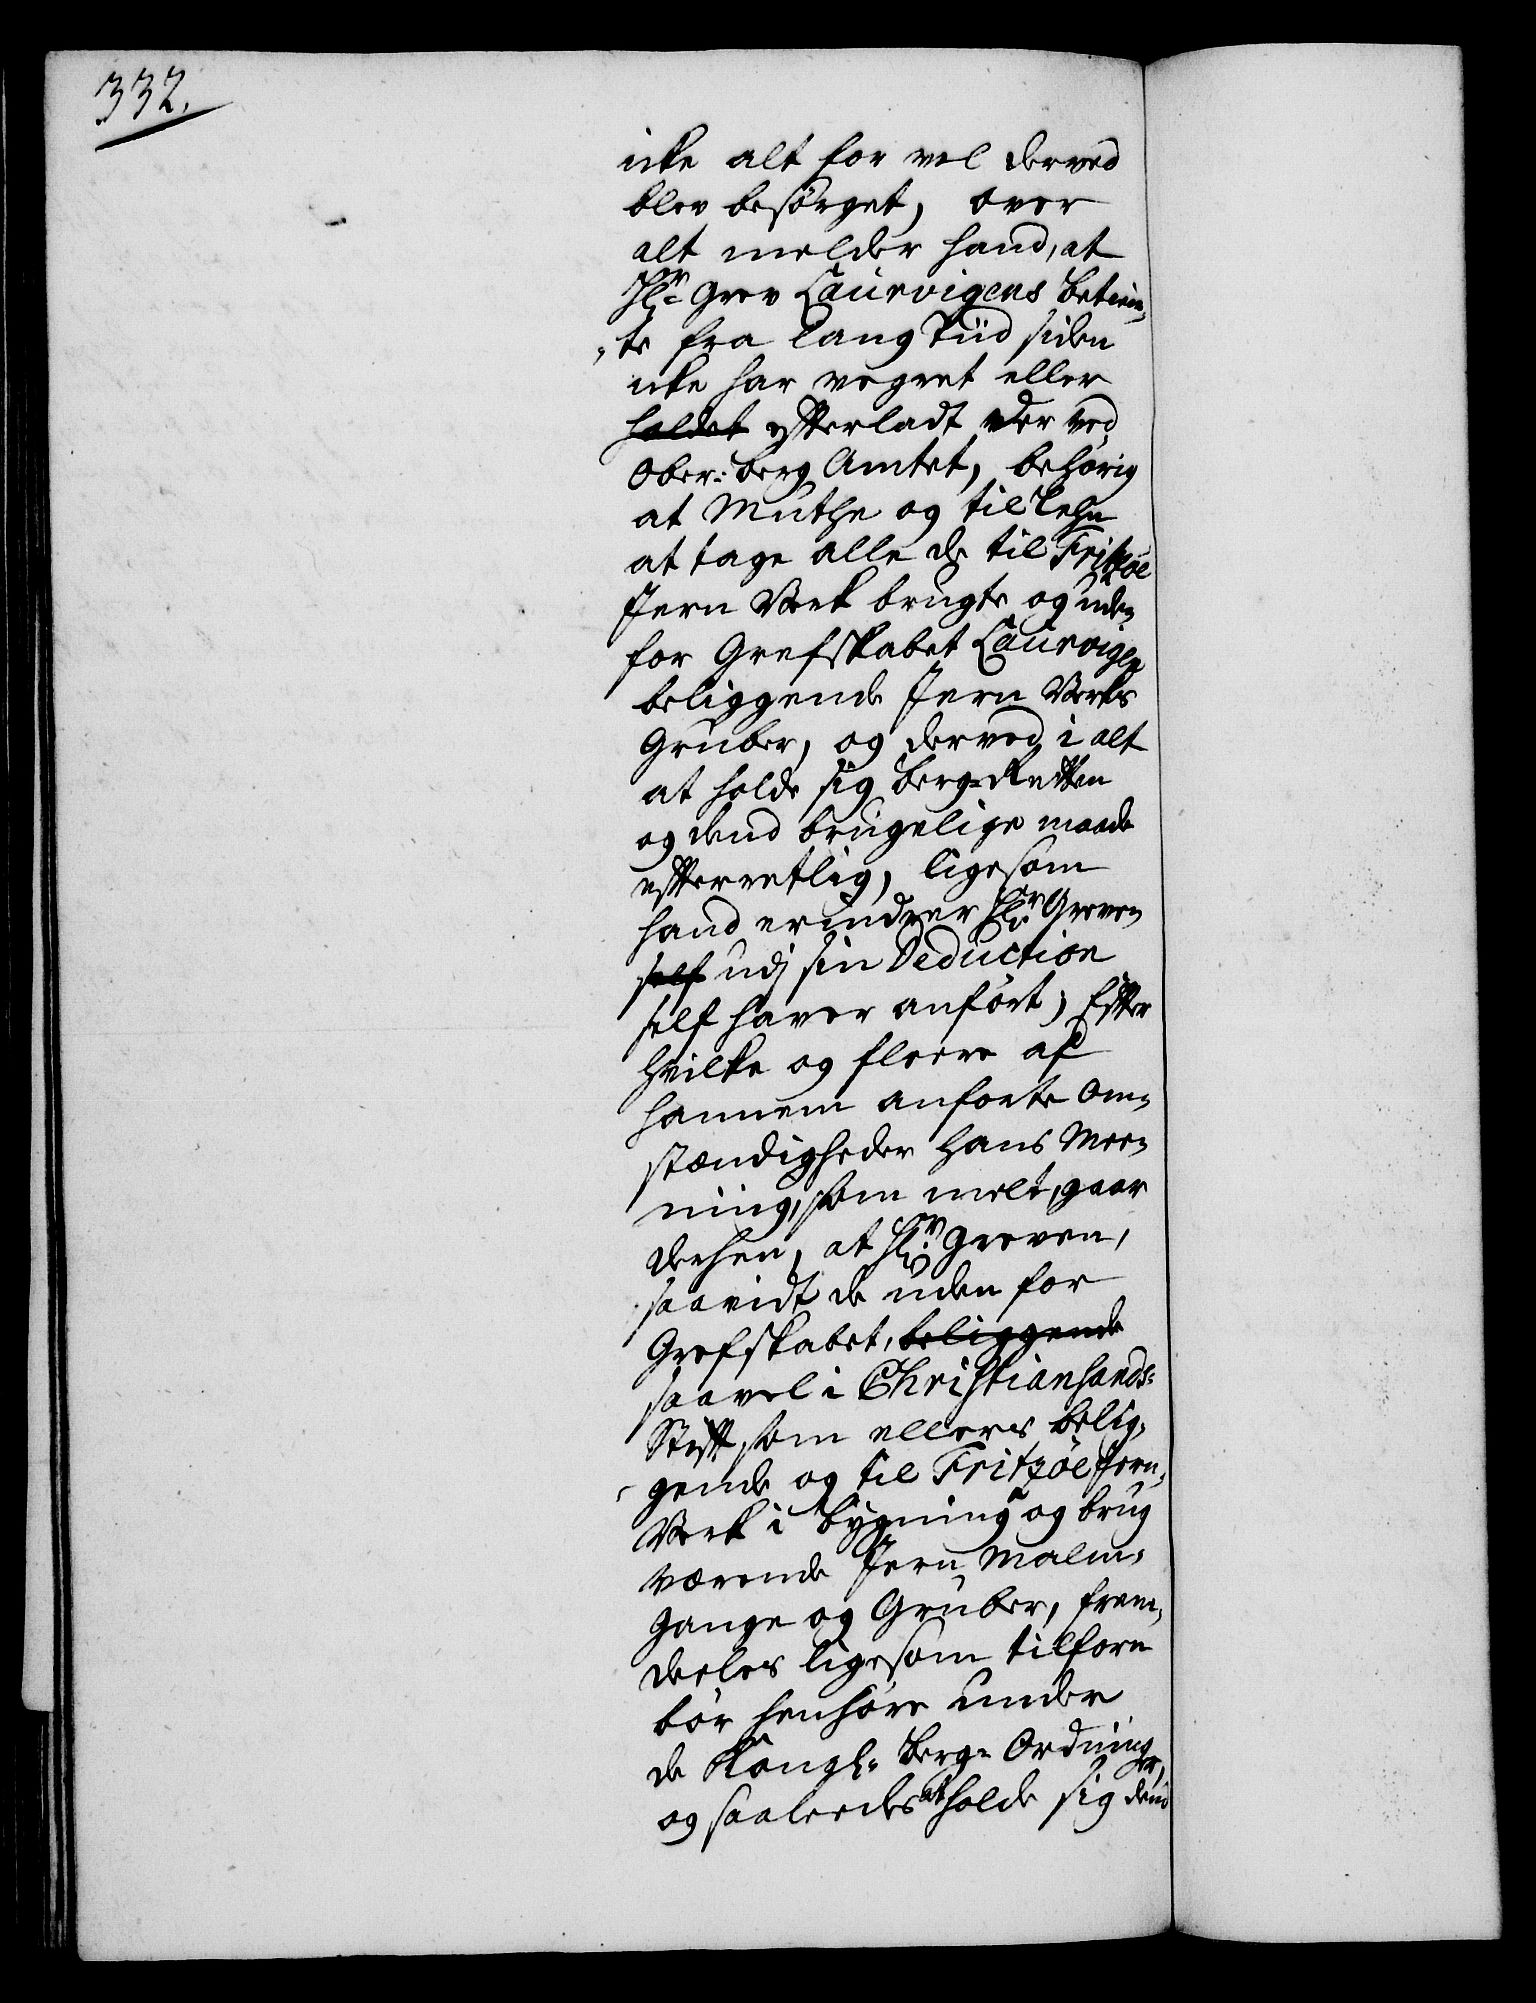 332.
icke alt for vel derved
blev besörget, over
alt melder hand, at
Hr: Grev Laurvigens betien„
„te fra lang Tiid siden
icke har vegret eller
holdet efterladt der ved
Ober: Berg Amtet, behörig
at Muthe og til Lehn
at tage alle de til Fritzöe
Jern Verk brugte og uden„
for Grefskabet Laurvigen
beliggende Jern Verks
Gruber, og derved i alt
at holde sig Berg-Retten
og dend brugelige maade
efterretlig, ligesom
hand erindrer Hr: Greven
self udj sin Deduction
self haver anfört; Efter
hvilke og fleere af
hannem anförte Om„
stændigheder hans Mee„
ning, som melt, gaar
derhen, at Hr: Greven,
saavidt de uden for
Grefskabet, beliggende
saavel i Christiansands-
Stift, som ellers belig„
gende og til Fritzöe Jern„
Verk i bygning og brug
værende Jern Malm„
gange og Gruber, frem„
deeles ligesom tilforn
bör henhöre under
de Kongl: Berg-Ordninger,
og saaledes at holde sig dend